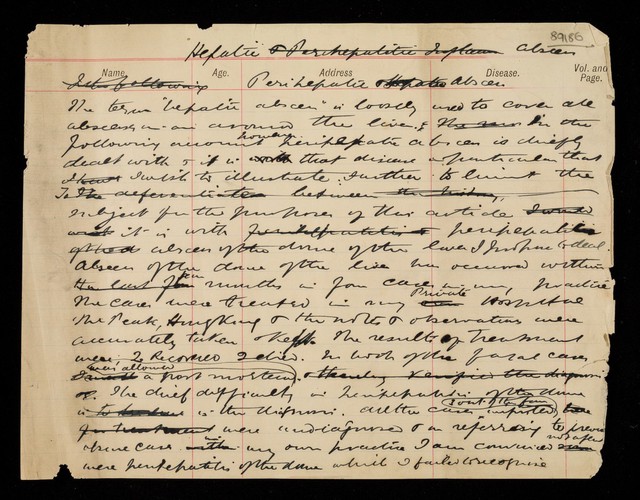 89186
Hepatic & Perihepatitic Inflam Abscess
Name. Age. Address Disease. Vol. and Page.
In the following Perihepatic Abscess
The term "hepatic abscess" is loosely used to cover all
abscesses in or around the liver &
following account however perihepatic abscess is chiefly
dealt with & it is with that disease in particular that
I wish to illustrate. Further to limit the
To the differentiate between the
subject for the purposes of this article I would
it is with perihepatitic
abscess of the dome of the liver I propose to deal.
Abscess of the dome of the liver has occurred within
the last few months in four cases in my practice
The cases were treated in my Private Hospital
The Peak, HongKong & the notes & observations were
accurately taken & kept. The results of treatment
were 2 Recovered 2 died. In both of the fatal cases
was allowed a post mortem & thereby verified the diagnosis
The chief difficulty in perihepatitis of the dome
is the diagnosis. All the cases
for treatment were undiagnosed & on referring to previous
obscure cases in my own practice I am convinced
were perihepatitis of the dome which I failed to recognise